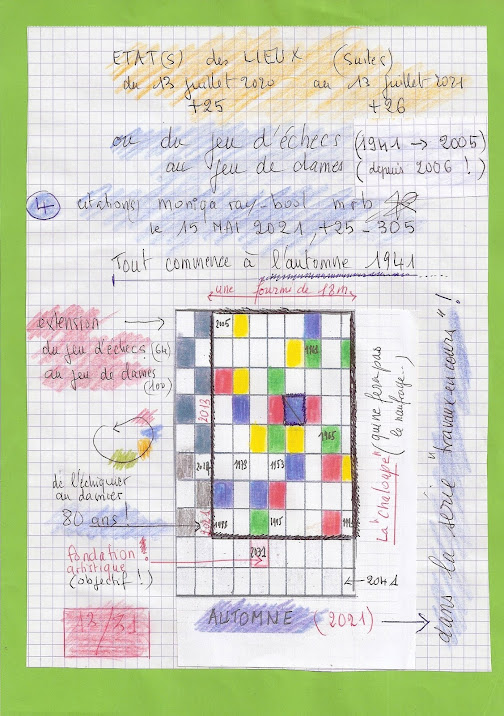 ETAT(S) des LIEUX (Suites)
du 13 juillet 2020 au 13 juillet 2021
+25 +26
ou du jeu d'échecs (1941 → 2005)
au jeu de dames (depuis 2006 !)
4 citations moniqa ray-bool mrb
le 15 MAI 2021, +25-305
Tout commence à l'automne 1941
une fourmi de 18m
extension →
du jeu d'échecs (64)
au jeu de dames
(100)
de l'échiquier
au damier
80 ans !
fondation !
artistique
(objectif !)
13/31
2005
2013
1965
1979 1953
2021
1915
2031
← 2041
La "chaloupe" (qui ne fera pas
le naufrage...)
AUTOMNE (2021) →
dans la série "travaux en cours" !